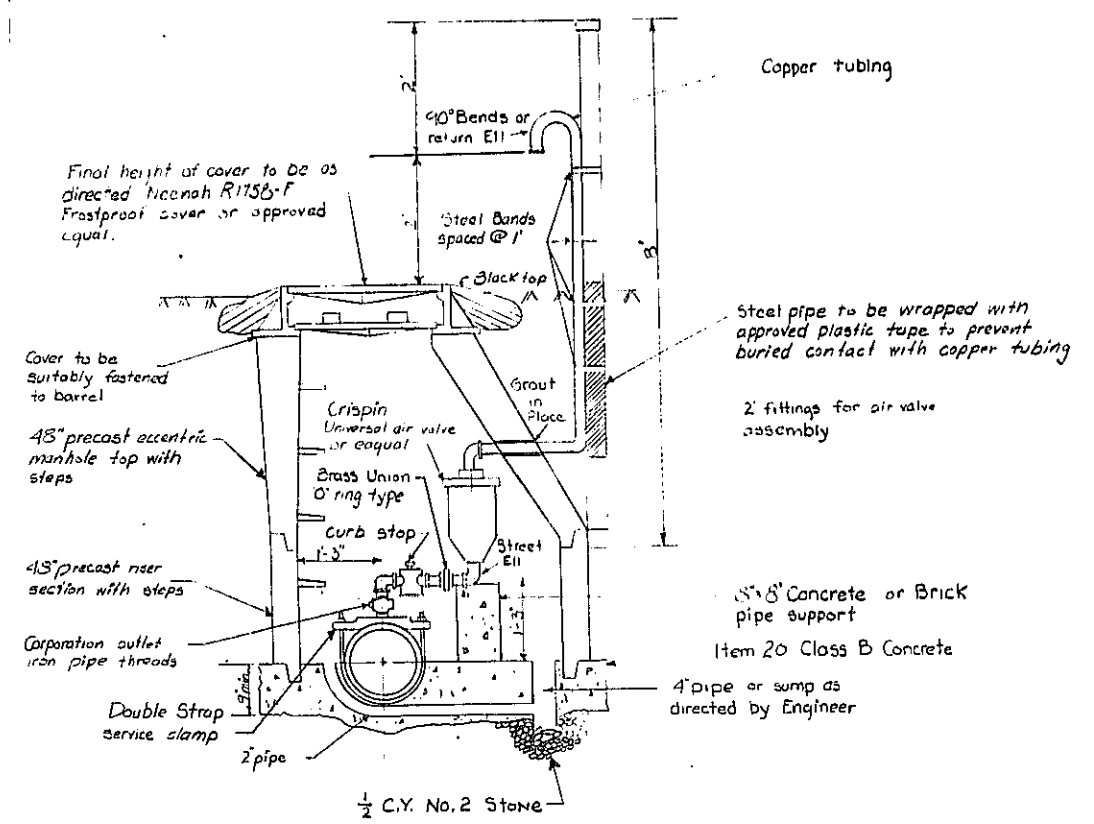 Copper tubing
2'
90° Bends or
return Ell
Final height of cover to be as
directed Neenah R1758-F
Frostproof cover or approved
equal.
2'
Steel Bands
spaced @ 1'
8'
Black top
Steel pipe to be wrapped with
approved plastic tape to prevent
buried contact with copper tubing
Cover to be
suitably fastened
to barrel
Grout
in
Place
2" fittings for air valve
assembly
Crispin
Universal air valve
or eaqual
48" precast eccentric
manhole top with
steps
Brass Union
"O" ring type
Curb stop
1'-3"
Street
Ell
48" precast riser
section with steps
8"x8" Concrete or Brick
pipe support
Corporation outlet
iron pipe threads
Item 20 Class B Concrete
9" min.
4" pipe or sump as
directed by Engineer
Double Strap
service clamp
2" pipe
1/2 C.Y. No. 2 Stone